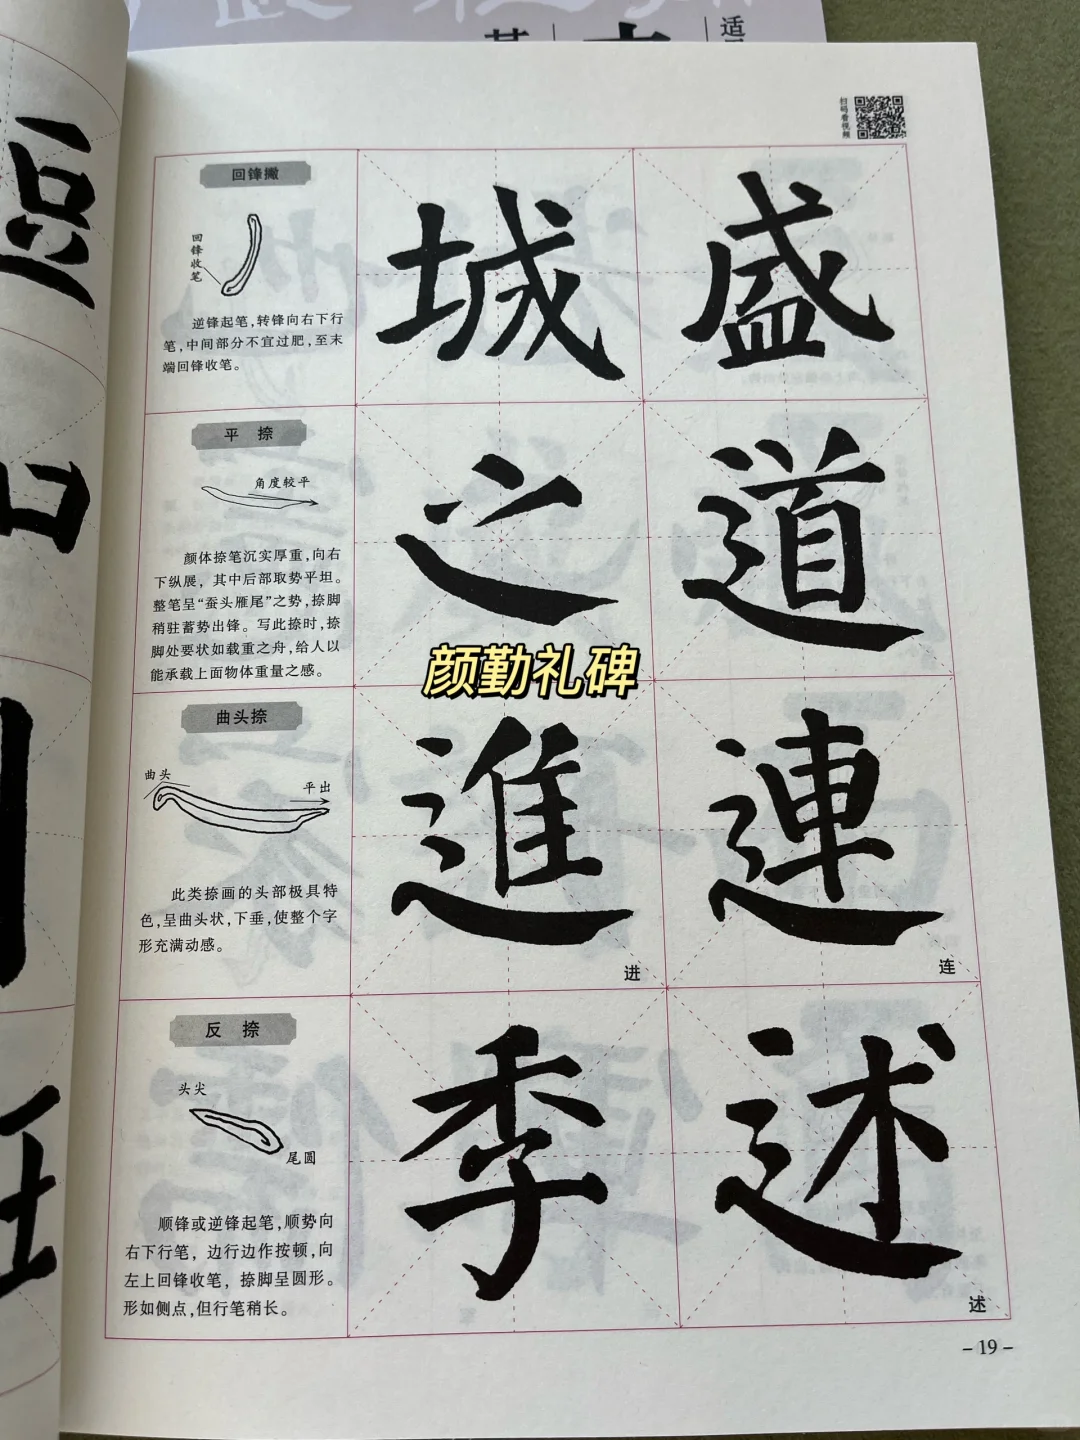 适
扫码看视频
回锋撇
回锋收笔
逆锋起笔,转锋向右下行
笔,中间部分不宜过肥,至末
端回锋收笔。
城
盛
平 捺
角度较平
颜体捺笔沉实厚重,向右
下纵展，其中后部取势平坦。
整笔呈“蚕头雁尾”之势,捺脚
稍驻蓄势出锋。写此捺时,捺
脚处要状如载重之舟,给人以
能承载上面物体重量之感。
之
道
颜勤礼碑
曲头捺
曲头
平出
此类捺画的头部极具特
色,呈曲头状,下垂,使整个字
形充满动感。
進
进
連
连
反 捺
头尖
尾圆
顺锋或逆锋起笔,顺势向
右下行笔，边行边作按顿,向
左上回锋收笔，捺脚呈圆形。
形如侧点,但行笔稍长。
季
述
述
-19-